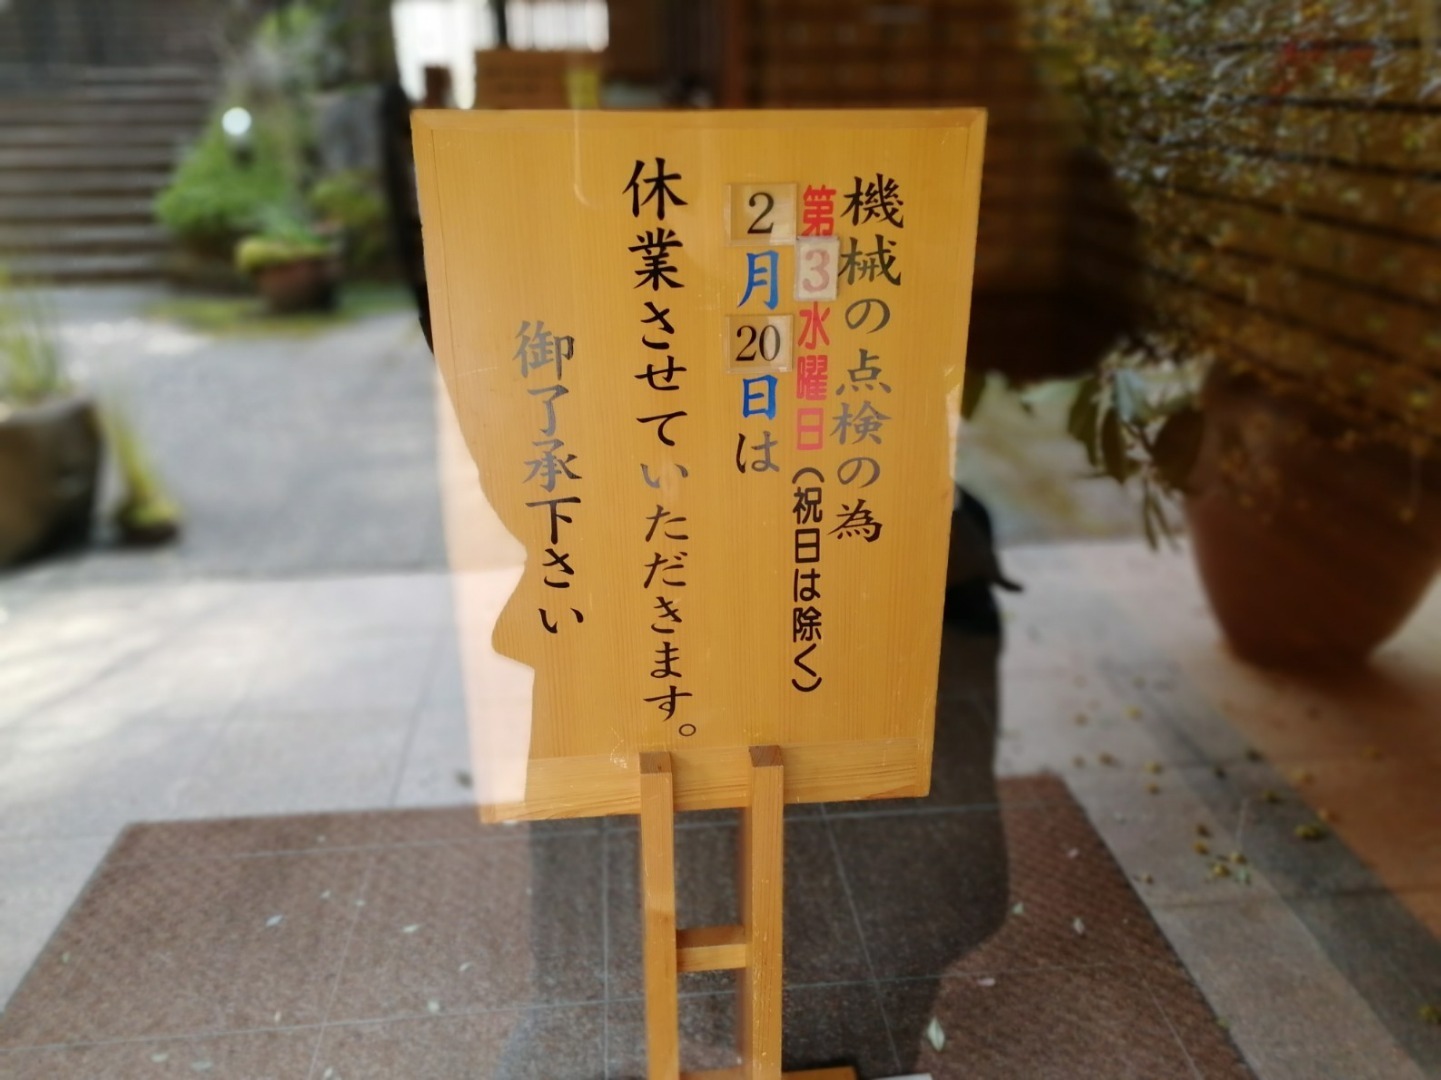 機械の点検の為
第3水曜日(祝日は除く)
2月20日は
休業させていただきます。
御了承下さい